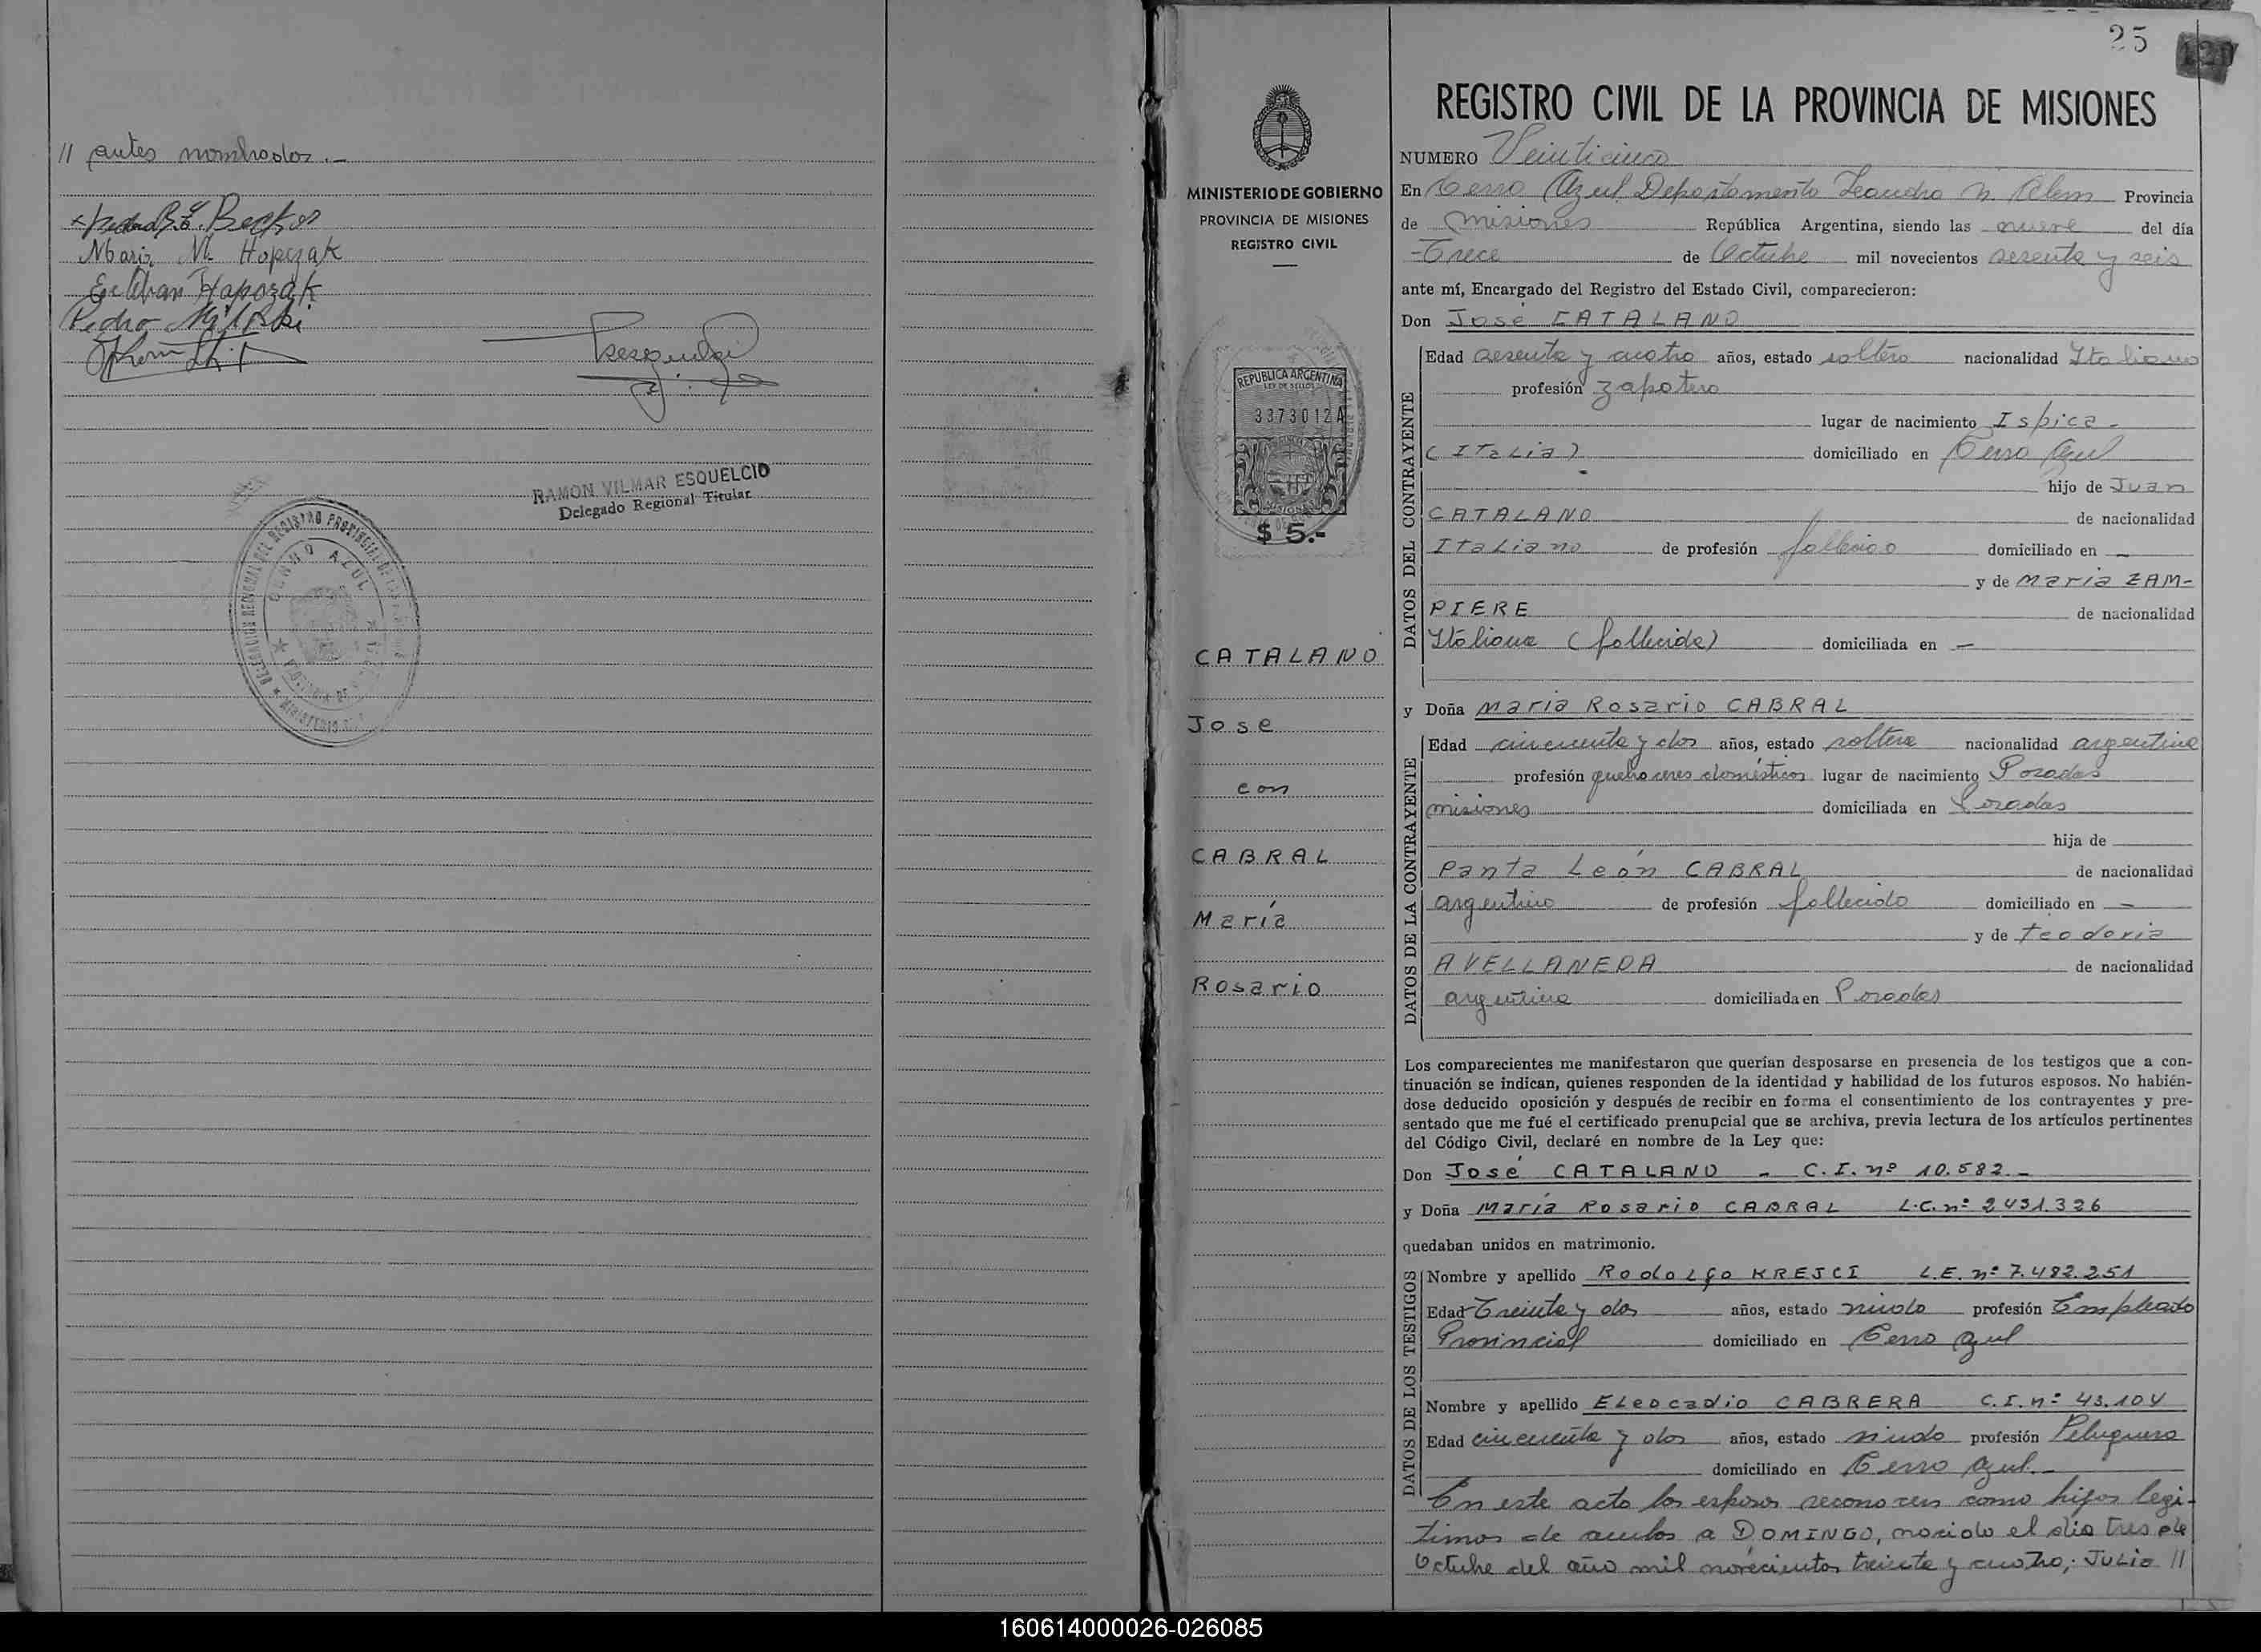 // antes nombrados.—
Pedro B. Z. Beckor
Maria M. Hapczak
Esteban Hapczak
Pedro
RAMON VILMAR ESQUELCIO
Delegado Regional Titular
DELEGACION REGIONAL DEL REGISTRO PROVINCIAL DE LAS
CERRO AZUL
25
MINISTERIO DE GOBIERNO
PROVINCIA DE MISIONES
REGISTRO CIVIL
REPUBLICA ARGENTINA
LEY DE SELLOS
3373012A
MISIONES
$ 5.-
CATALANO
Jose
con
CABRAL
María
Rosario
REGISTRO CIVIL DE LA PROVINCIA DE MISIONES
NUMERO Veinticinco
En Cerro Azul Departamento Leandro N. Alem Provincia
de Misiones República Argentina, siendo las nueve del día
-Trece de Octubre mil novecientos sesenta y seis
ante mí, Encargado del Registro del Estado Civil, comparecieron:
Don José CATALANO
DATOS DEL CONTRAYENTE
Edad sesenta y cuatro años, estado soltero nacionalidad Italiano
profesión zapatero
lugar de nacimiento Ispica-
(Italia) domiciliado en Cerro Azul
hijo de Juan
CATALANO de nacionalidad
Italiano de profesión fallecido domiciliado en —
y de María ZAM-
PIERE de nacionalidad
Italiana (fallecida) domiciliada en —
y Doña María Rosario CABRAL
DATOS DE LA CONTRAYENTE
Edad cincuenta y dos años, estado soltera nacionalidad argentina
profesión quehaceres domésticos lugar de nacimiento Posadas
misiones domiciliada en Posadas
hija de
Panta León CABRAL de nacionalidad
argentino de profesión fallecido domiciliado en —
y de teodoria
AVELLANEDA de nacionalidad
argentina domiciliada en Posadas
Los comparecientes me manifestaron que querían desposarse en presencia de los testigos que a con-
tinuación se indican, quienes responden de la identidad y habilidad de los futuros esposos. No habién-
dose deducido oposición y después de recibir en forma el consentimiento de los contrayentes y pre-
sentado que me fué el certificado prenupcial que se archiva, previa lectura de los artículos pertinentes
del Código Civil, declaré en nombre de la Ley que:
Don José CATALANO - C.I. nº 10.582.-
y Doña María Rosario CABRAL L.C. nº 2431.326
quedaban unidos en matrimonio.
DATOS DE LOS TESTIGOS
Nombre y apellido Rodolfo KREJCI L.E. nº 7.482.251
Edad Treinta y dos años, estado viudo profesión Empleado
Provincial domiciliado en Cerro Azul
Nombre y apellido ELeocadio CABRERA C.I. nº 43.104
Edad cincuenta y dos años, estado viudo profesión Peluquero
domiciliado en Cerro Azul.-
En este acto los esposos reconocen como hijos legi-
timos de ambos a DOMINGO, nacido el día tres de
Octubre del año mil novecientos treinta y cuatro; JULIO //
160614000026-026085